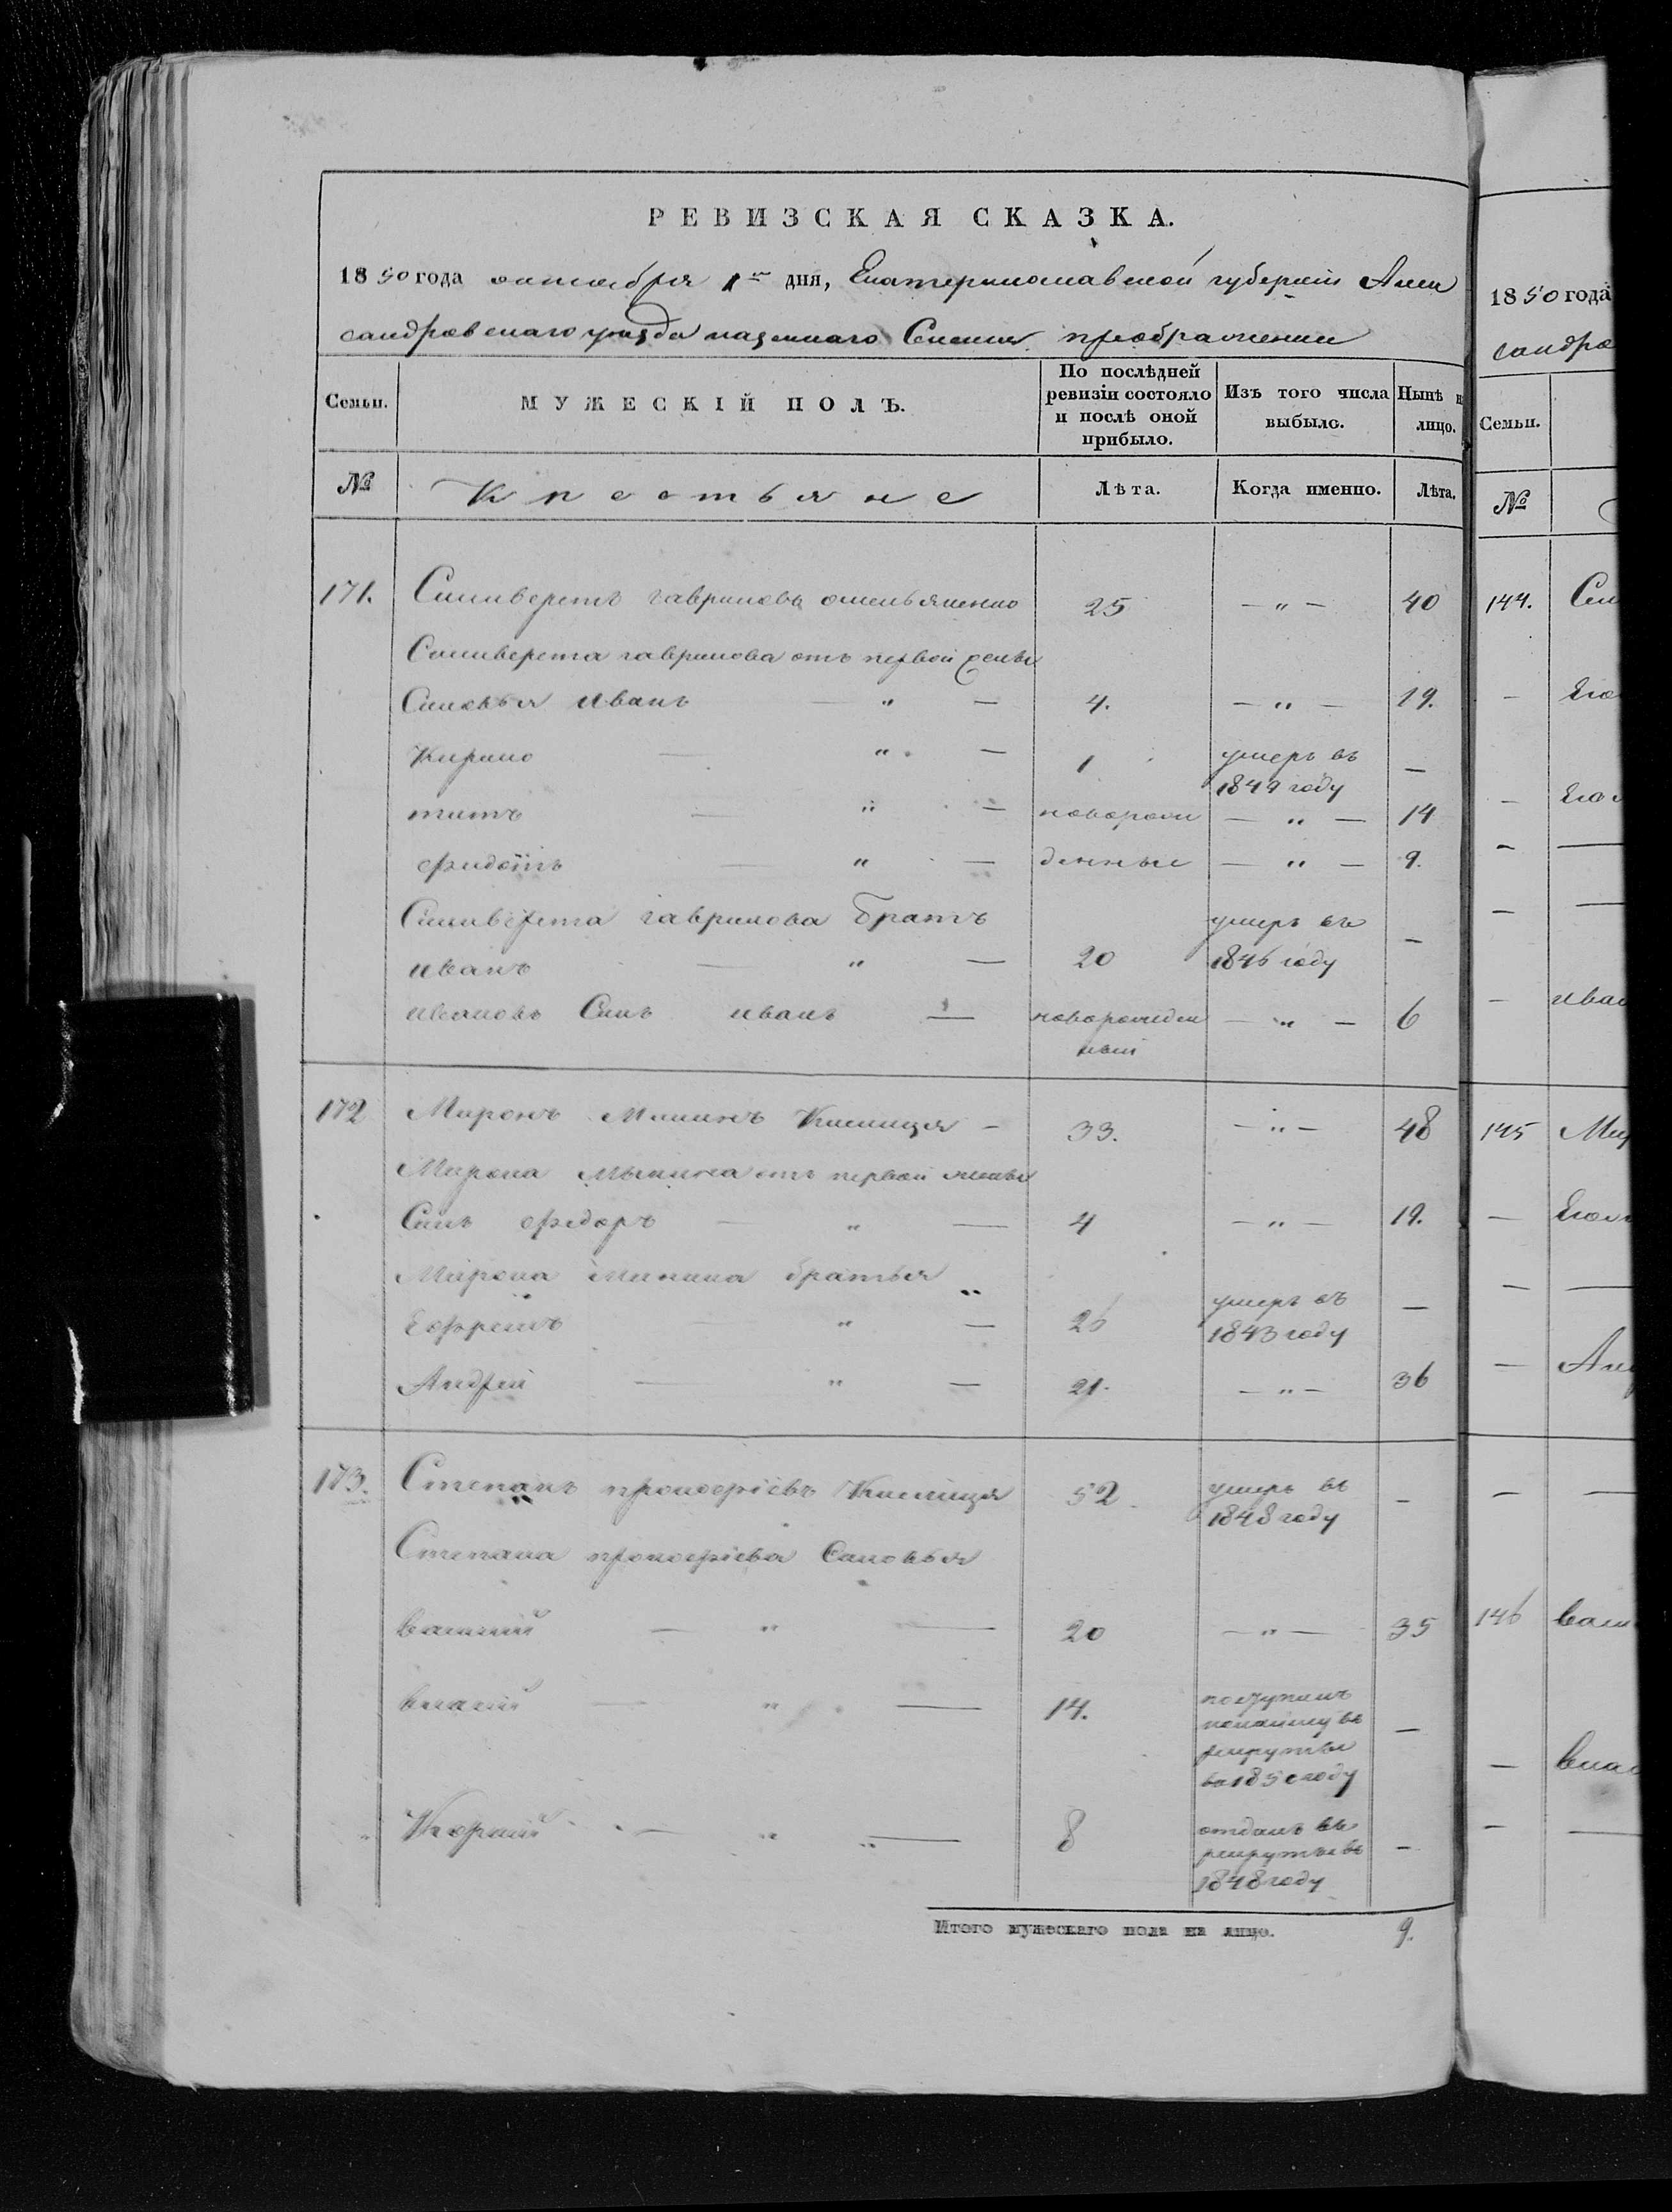 РЕВИЗСКАЯ СКАЗКА.
1850 года октября 1го дня, Екатеринославской губерніи Алек
сандровскаго уезда казеннаго Селения преображенки
Семьи. МУЖЕСКІЙ ПОЛЪ. По послѣдней ревизіи состояло и послѣ оной прибыло. Изъ того числа выбыло. Нынѣ н лицо.
№ Крестьяне Лѣта. Когда именно. Лѣта.
171. Силиверстъ гавриловъ омельяненко 25 — „ — 40
Силиверста гаврилова отъ первой жены
Сыновья иванъ — „ — 4. — „ — 19.
Кирило — „ — 1 умеръ въ —
1849 году
титъ — „ — поворож — „ — 14
федотъ — „ — денные — „ — 9.
Силиверста гаврилова братъ умеръ въ
иванъ — „ — 20 1846 году —
ивановъ Сынъ иванъ — новорожден — „ — 6
ный
172 Миронъ Мининъ Кислица — 33. — „ — 48
Мирона Минина отъ первой жены
Сынъ федоръ — „ — 4 — „ — 19.
Мирона Минина братья „
Ефремъ — „ — 26 умеръ въ —
1843 году
Андрей — „ — 21. — „ — 36
173. Степанъ прокофіевъ Кислица 52 умеръ въ —
1848 году
Степана прокофіева Сыновья
василий — „ — 20 — „ — 35
власий — „ — 14. поступилъ
понайму въ —
рекруты
въ 1850 году
— „ — 8 отданъ въ
рекруты въ —
1848 году
Итого мужескаго пола на лицо. 9.
1850 года
сандро
Семьи.
№
144. Сил
— Его
— Его
— —
— —
— иван
145 Мир
— Его
— —
— Анд
— —
146 васи
— влас
— —